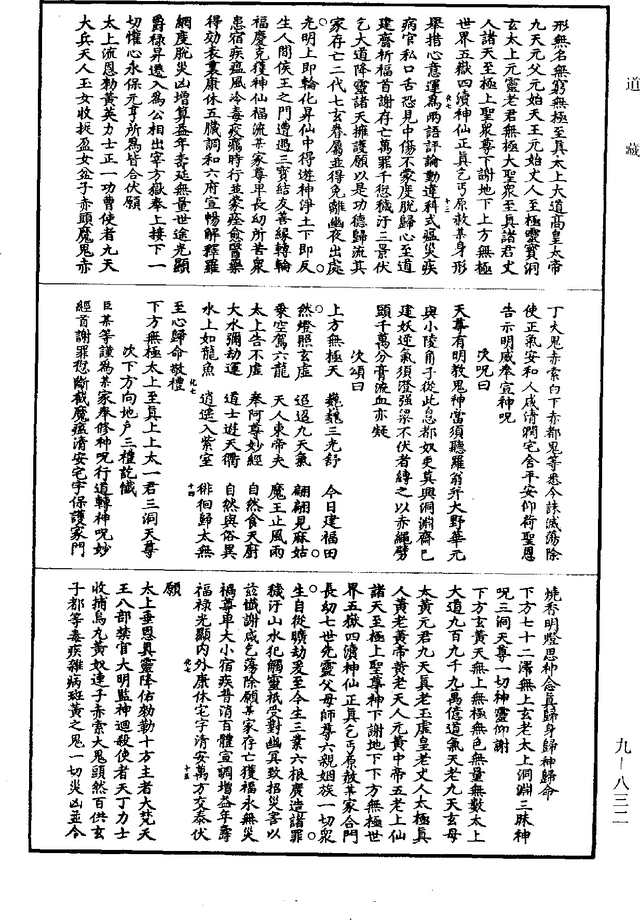 道藏
形無名無窮無極至真太上大道高皇太帝
九天元父元始天王元始丈人至極靈寶洞
玄太上元靈老君無極大聖衆至真諸君丈
人諸天至極上聖衆尊下謝地下上方無極
世界五嶽四瀆神仙正真乞丐原赦某身形
舉措心意運爲兩語評論動違科式瘟災疾
病官私口舌恐見中傷不蒙度脫歸心至道
建齋祈福首謝存亡萬罪千愆穢汙三景伏
乞大道降靈諸天擁護願以是功德歸流其
家存亡二代七玄眷屬並得免離幽夜出處
光明上即輪化昇仙中得遊神淨土下即反
生人間侯王之門遭遇三寶結友善緣轉輪
福慶克獲神仙福流某家尊卑長幼所苦衆
患宿疾瘟風冷毒疫癘時行並蒙痊愈醫藥
得効表裏康休五臟調和六府宣暢解釋羅
網度脫災凶增算益年壽延無量世途光顯
爵祿昇遷入爲公相出宰方嶽奉上接下一
切懽心永保元亨所爲皆合伏願
太上流恩勅黃英力士正一功曹使者九天
大兵天人玉女收捉盈女盆子赤頭魔鬼赤
丁大鬼赤索白下赤都鬼等悉令誅滅蕩除
使正氣安和人咸清潤宅舍平安仰荷聖恩
告示明威奉宣神呪
次呪曰
天尊有明教鬼神當須聽羅翁斤大野華元
與小陵角子從此息都奴更莫興洞淵齊已
建妖逆氣須澄強梁不伏者縛之以赤繩劈
頭千萬分膏流血亦凝
次頌曰
上方無極天　巍巍三光舒　今日建福田
然燈照玄虛　迢迢九天氣　翩翩見麻姑
乗空駕六龍　天人東帝夫　魔王止風雨
太上告不虛　奉阿尊妙經　自然食天厨
大水彌劫運　道士遊天衢　自然與俗異
水上如龍魚　逍遥入紫室　徘徊歸太無
至心歸命敬禮
下方無極太上至真上上太一君三洞天尊
次下方向地戶三禮訖懺
臣某等謹爲某家奉修神呪行道轉神呪妙
經首謝罪愆斷截魔瘟清安宅宇保護家門
燒香明燈思神念真歸身歸神歸命
下方七十二澤無上玄老太上洞淵三昧神
呪三洞天尊一切神靈仰謝
下方玄黃天無上無極無色無量無數太上
大道九百九千九萬億道氣天老九天玄母
太黃元君九天真老玉虛皇老丈人太極真
人黃老黃帝黃老天人元黃中帝五老上仙
諸天至極上聖尊神下謝地下下方無極世
界五嶽四瀆神仙正真乞丐原赦某家合門
長幼七世先靈父母師尊六親姻族一切衆
生自從曠劫爰至今生三業六根廣造諸罪
穢汙山水犯觸靈祇受對幽冥致招災害以
玆懺謝咸乞蕩除願某家存亡獲福永無災
禍尊卑大小宿疾普消百體宣調增益年壽
福祿光顯內外康休宅宇清安萬方交泰伏
願
太上垂恩真靈降佑勑勒十方主者大梵天
王八部禁官大明監神迴殺使者天丁力士
收捕烏丸黃奴連子赤索大鬼頭然百供玄
子都等毒疾雜病斑黃之鬼一切災凶並令
九－八三二